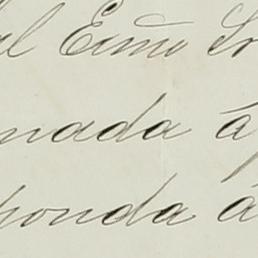 al Exmo Sr
nada á
ponda á